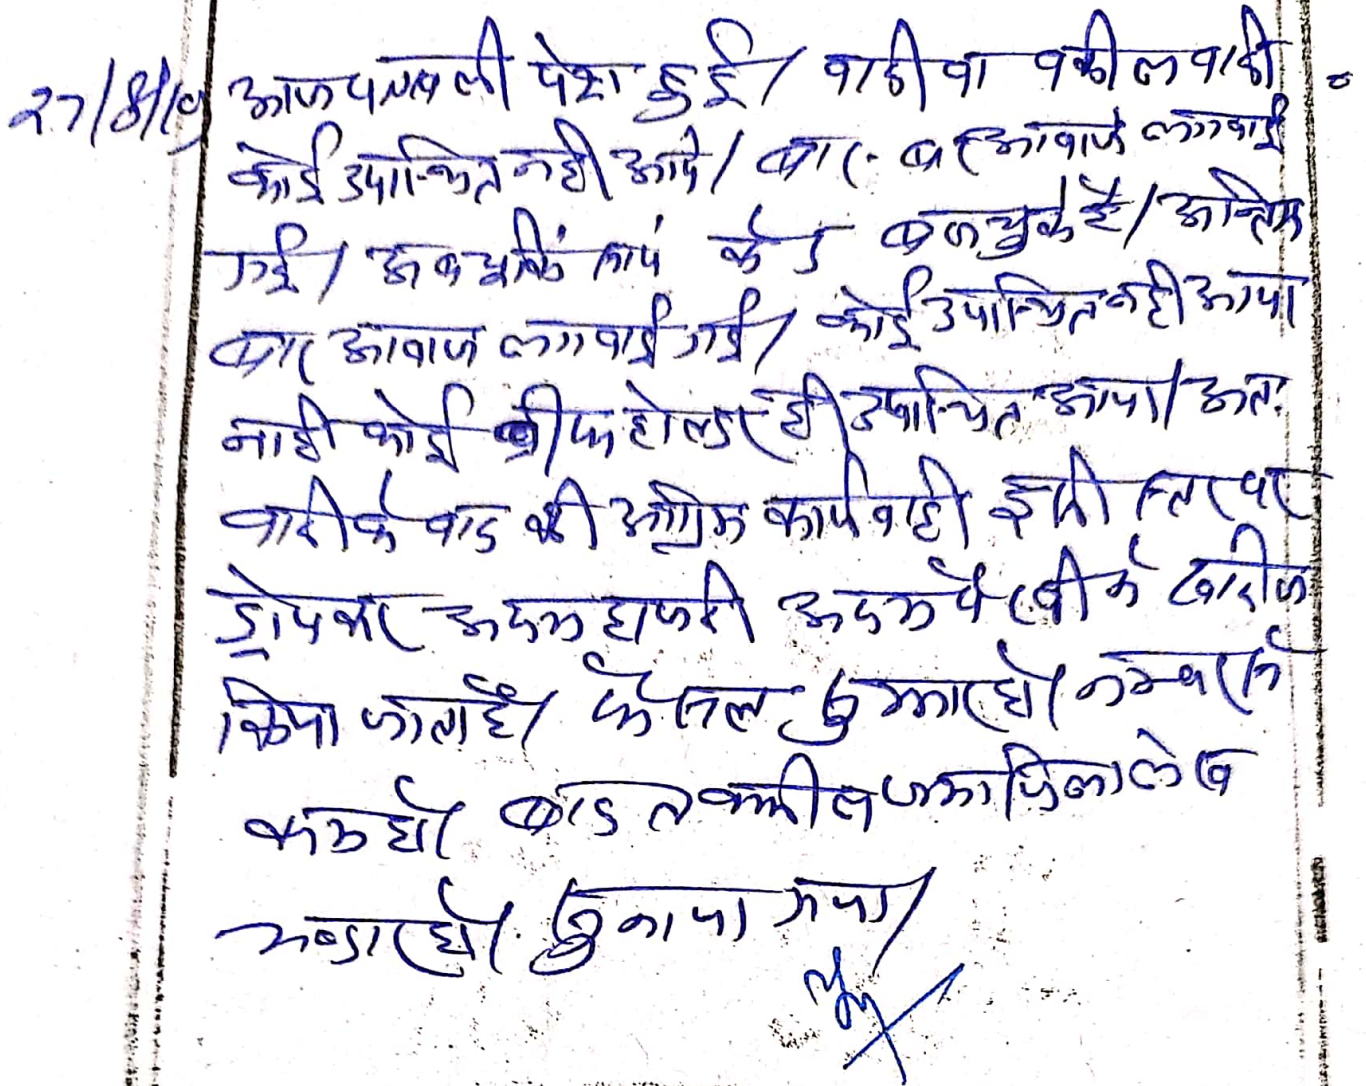 27/8/19 आज पत्रावली पेश हुई। वादी वा वकील वादी
कोई उपस्थित नही आये। बार-बार आवाजे लगवाई
गई। अब सायं के 5 बज चुके है। अन्तिम
बार आवाज लगवाई गई। कोई उपस्थित नही आया
नाही कोई ब्रीफ होल्डर ही उपस्थित आया। अतः
वादी के वाद की अग्रिम कार्यवाही इसी स्तर पर
ड्रोप कर अदम हाजरी अदम पैरवी मे खारीज
किया जाता है। फैसल शुमार हो। नम्बर से
कम हो। बाद तकमील जमा जिला लेख
भण्डार हो। सुनाया गया।